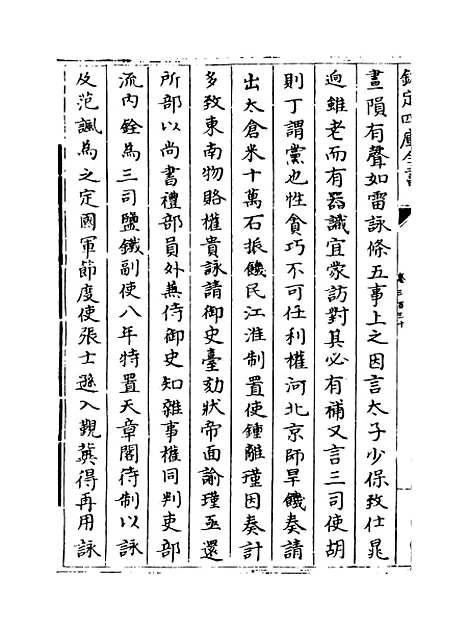 欽定四庫全書
卷三百三十
晝隕有聲如雷詠條五事上之因言太子少保致仕晁
逈雖老而有器識宜蒙訪對其必有補又言三司使胡
則丁謂黨也性貪巧不可任利權河北京師旱饑奏請
出太倉米十萬石振饑民江淮制置使鍾離瑾因奏計
多致東南物賂權貴詠請御史臺劾狀帝面諭瑾亟還
所部以尚書禮部員外兼侍御史知雜事權同判吏部
流内銓為三司鹽鐵副使八年特置天章閣待制以詠
及范諷為之定國軍節度使張士遜入覲冀得再用詠